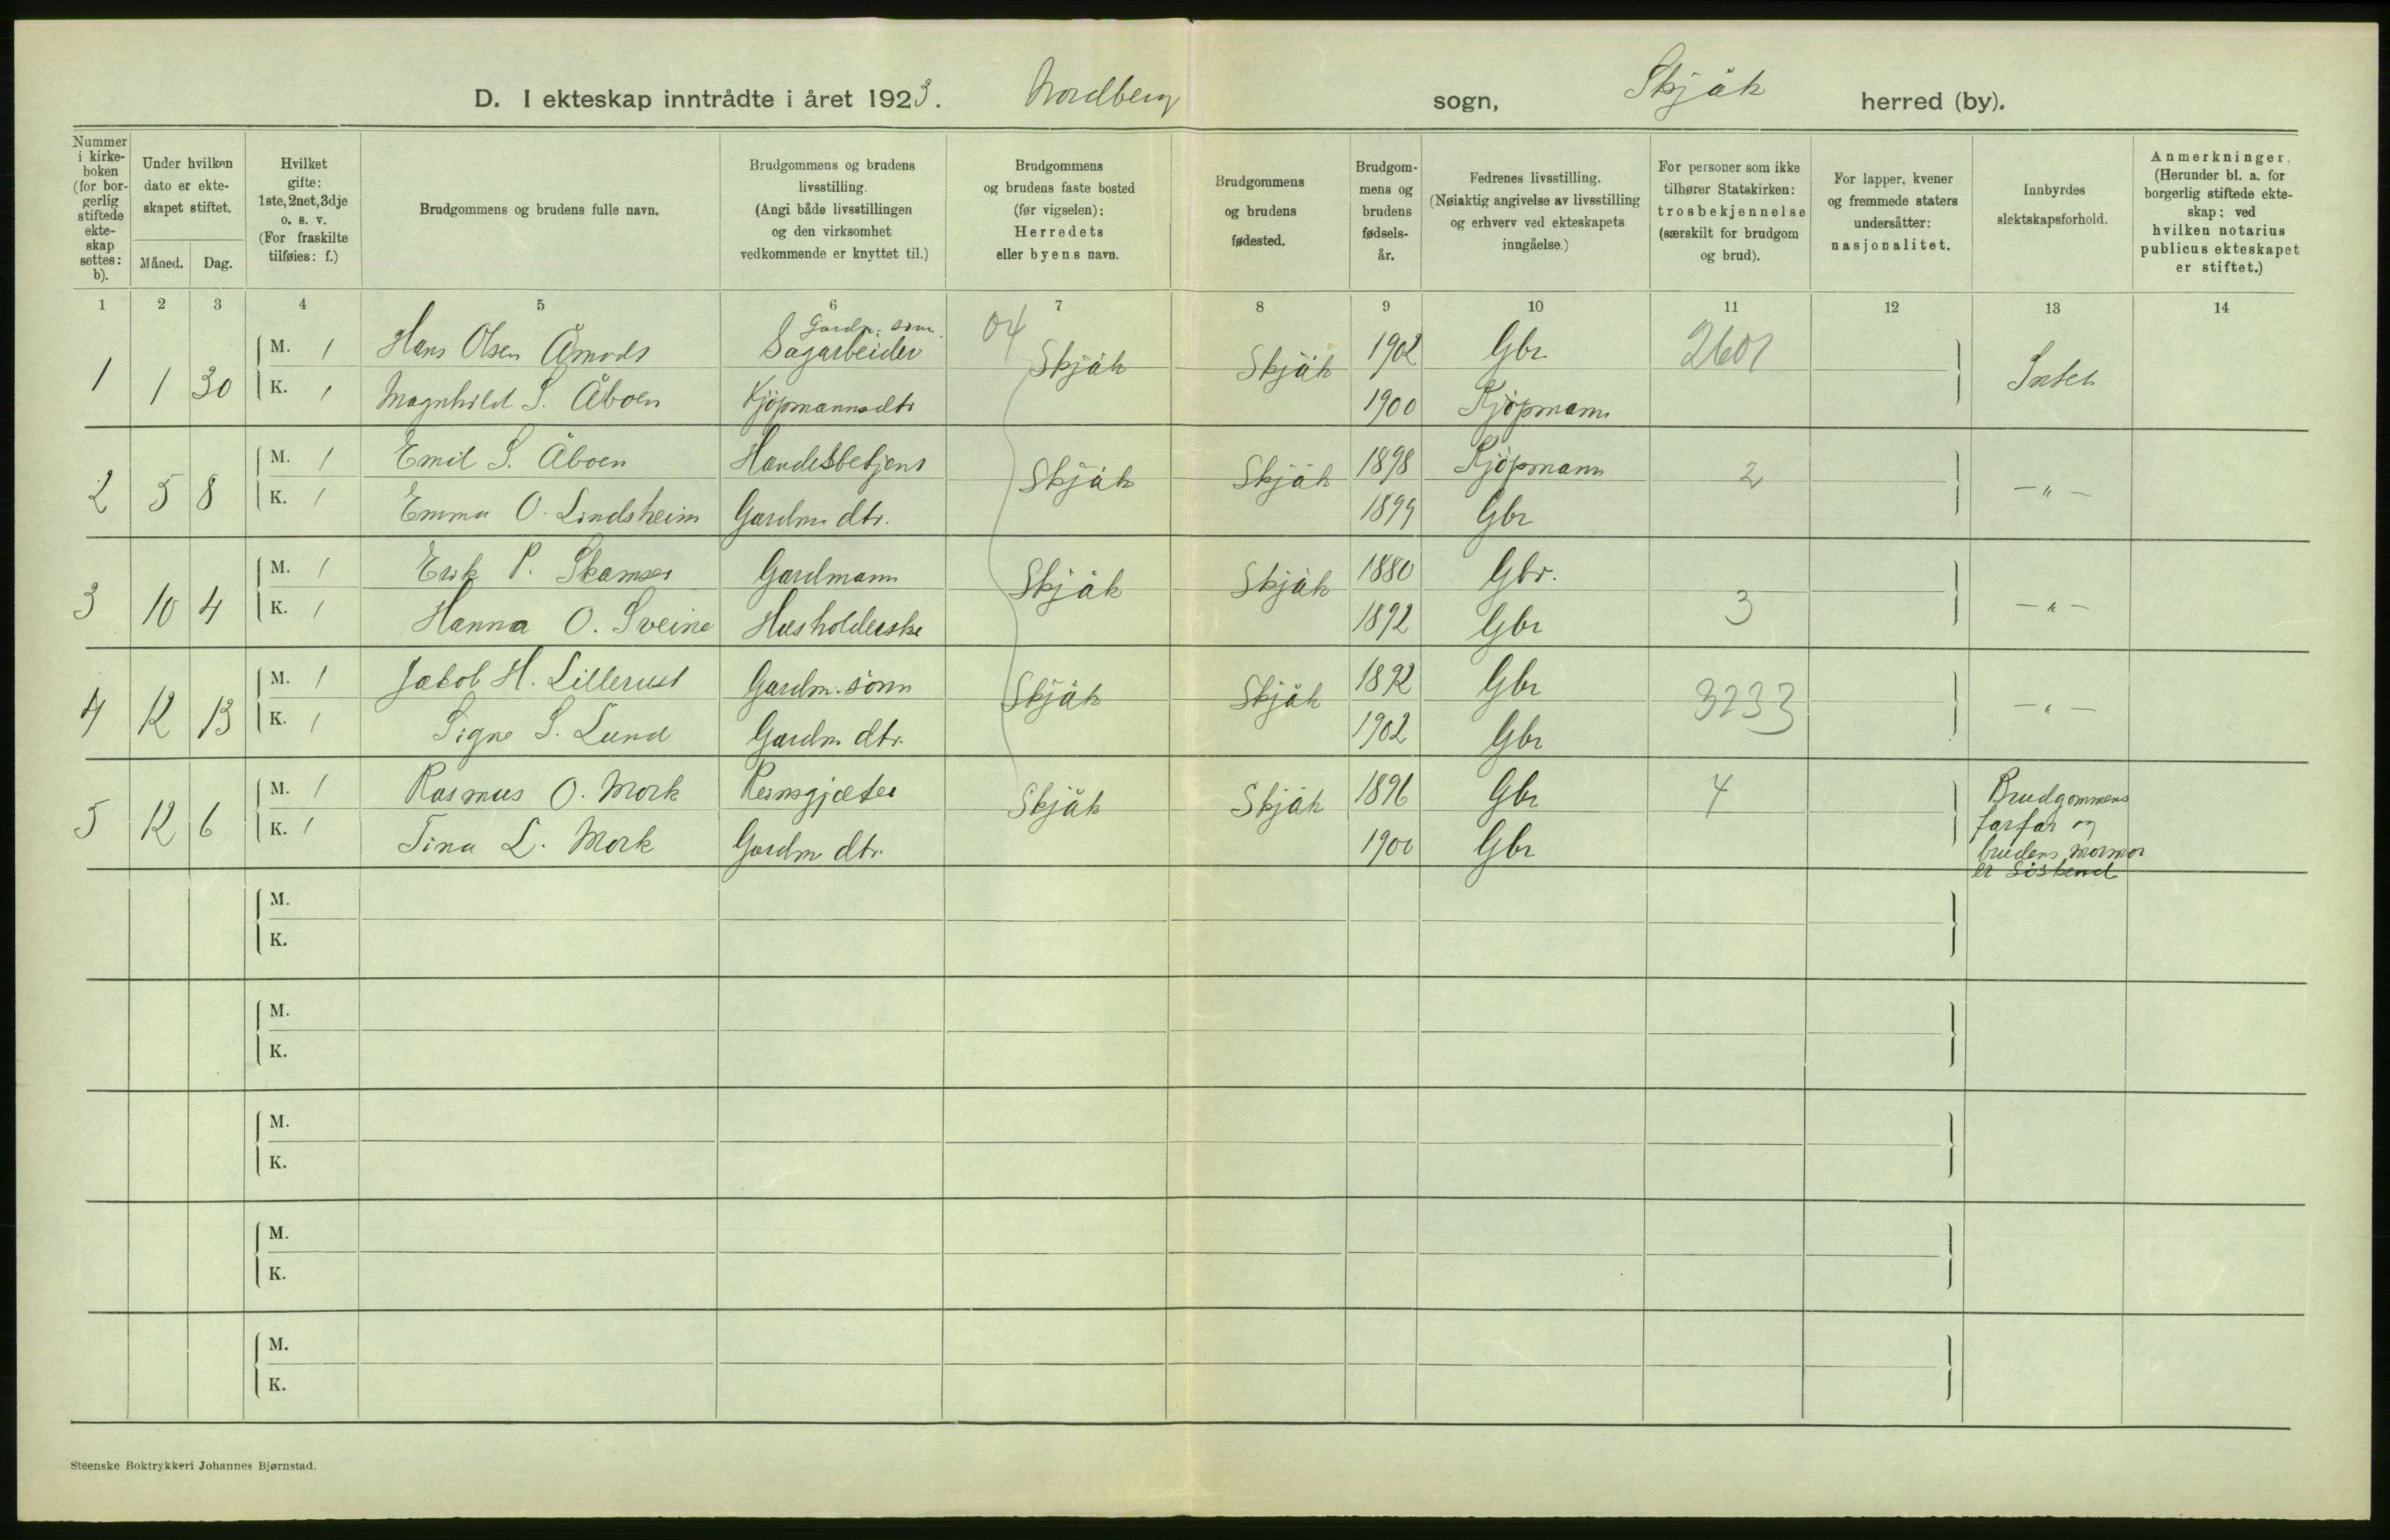 D. I ekteskap inntrådte i året 1923. Nordberg sogn, Skjåk herred (by).
Nummer i kirke-boken (for bor-gerlig stiftede ekte-skap settes: b).
Under hvilken dato er ekte-skapet stiftet.
Måned. Dag.
Hvilket gifte: 1ste, 2net, 3dje o. s. v. (For fraskilte tilføies: f.)
Brudgommens og brudens fulle navn.
Brudgommens og brudens livsstilling. (Angi både livsstillingen og den virksomhet vedkommende er knyttet til.)
Brudgommens og brudens faste bosted (før vigselen): Herredets eller byens navn.
Brudgommens og brudens fødested.
Brudgom-mens og brudens fødsels-år.
Fedrenes livsstilling. (Nøiaktig angivelse av livsstilling og erhverv ved ekteskapets inngåelse.)
For personer som ikke tilhører Statskirken: trosbekjennelse (særskilt for brudgom og brud).
For lapper, kvener og fremmede staters undersåtter: nasjonalitet.
Innbyrdes slektskapsforhold.
Anmerkninger. (Herunder bl. a. for borgerlig stiftede ekte-skap: ved hvilken notarius publicus ekteskapet er stiftet.)
1 2 3 4 5 6 7 8 9 10 11 12 13 14
Gardm. sønn 04
1 1 30 M. 1 Hans Olsen Åmodt Sagarbeider Skjåk Skjåk 1902 Gbr 2601 Intet
K. 1 Magnhild S. Åboen Kjöpmannsdtr 1900 Kjöpmann
2 5 8 M. 1 Emil S. Åboen Handelsbetjent Skjåk Skjåk 1898 Kjöpmann 2 — " —
K. 1 Emma O. Lindsheim Gardm. dtr. 1899 Gbr
3 10 4 M. 1 Erik P. Skamser Gardmann Skjåk Skjåk 1880 Gbr. 3 — " —
K. 1 Hanna O. Sveine Husholderske 1892 Gbr
4 12 13 M. 1 Jakob H. Lillerust Gardm. sönn Skjåk Skjåk 1892 Gbr 3233 — " —
K. 1 Signe S. Lund Gardm. dtr. 1902 Gbr
5 12 6 M. 1 Rasmus O. Mork Reinsgjæter Skjåk Skjåk 1896 Gbr 4 Brudgommens
farfar og
K. 1 Tina L. Mork Gardm. dtr. 1900 Gbr brudens mormor
er söskend
M.
K.
M.
K.
M.
K.
M.
K.
M.
K.
Steenske Boktrykkeri Johannes Bjørnstad.